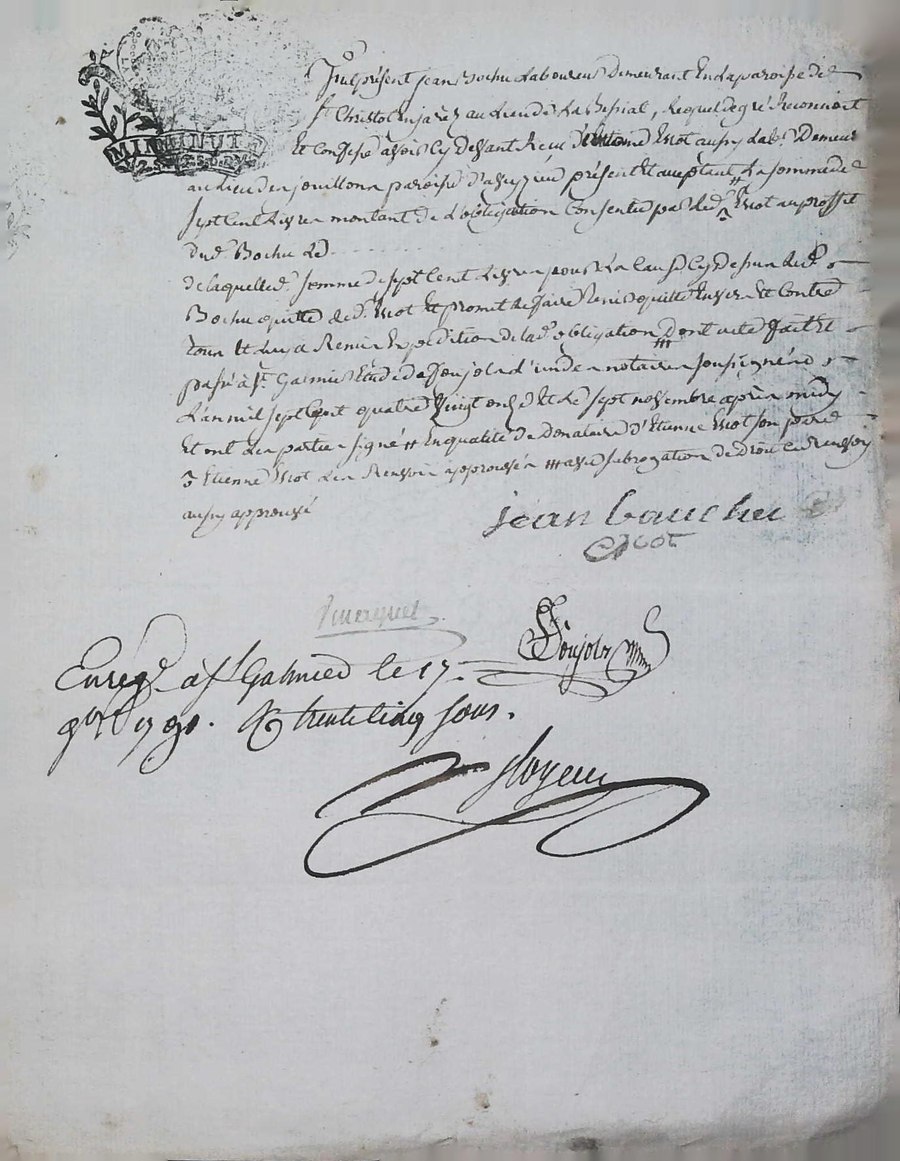 MINUT
Fut présent Jean Bochu Laboureur Demeurant En la paroisse de
St Christol En jarez au Lieu de La Bessial, Lequel de gré Reconnoit
Et Confesse avoir Cy devant Reçu Viot aussy Lab. Demeur
au Lieu de jouillon paroisse d'aveyzieu présent Et acceptant La somme de
Sept Cent Livres montant de L'obligation Consentie par Led. Viot au proffit
dud. Bochu Le
de laquelle d. somme de sept Cent Livres pour La Cause Cy dessus Led.
Bochu quitte Led. Viot Et promet de faire tenir quitte Envers Et Contre
tous Et Luy a Remis Expedition de lad. obligation Dont acte fait Et
passé à St Galmier Étude de Poujol d'un des notaires soussigné
L'an mil sept Cent quatre Vingt Et Le sept novembre après midy
Et ont Les parties signé # En qualité de Donataire d'Etienne Viot son père
Etienne Viot Les Renvois approuvés ### avec subrogation de droit Ce Renvoy
aussy approuvé
jean bauchu
Viot
Poujol
Enregé à St Galmier le 17.
9bre 1790. Rç trente cinq sous.